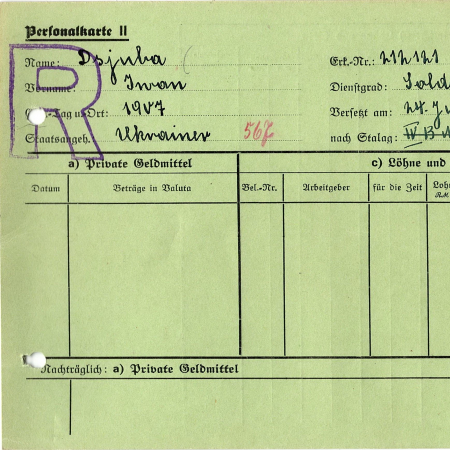 Personalkarte II
Name: Dsjuba
Erk.-Nr.: 212121
Vorname: Iwan
Dienstgrad: Sold
Tag u. Ort: 1907
Versetzt am: 24. Ju
Staatsangeh. Ukrainer 567
nach Stalag: IV B
R
a) Private Geldmittel
c) Löhne und
Datum
Beträge in Valuta
Bel.-Nr.
Arbeitgeber
für die Zeit
Loh
RM
Nachträglich: a) Private Geldmittel